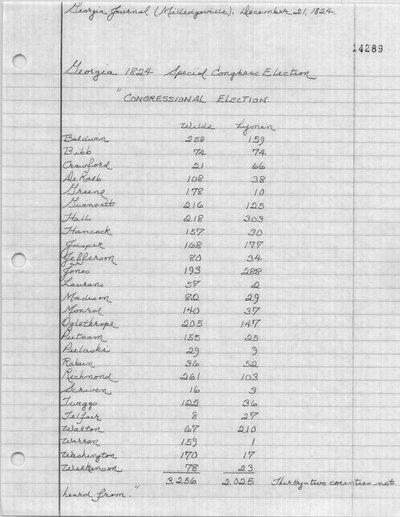 Georgia Journal (Milledgeville). December 21, 1824.
14289
Georgia 1824 Special Congress Election
"CONGRESSIONAL ELECTION.
Wilde Lyman
Baldwin 258 159
Bibb 74 74
Crawford 21 66
DeKalb 108 38
Greene 178 10
Gwinnett 216 125
Hall 218 303
Hancock 157 30
Jasper 168 177
Jefferson 80 34
Jones 193 288
Laurens 57 2
Madison 82 29
Monroe 140 37
Oglethorpe 205 147
Putnam 155 25
Pulaski 29 9
Rabun 36 52
Richmond 261 103
Scriven 16 3
Twiggs 122 36
Telfair 8 27
Walton 67 210
Warren 159 1
Washington 170 17
Wilkinson 78 23
3,256 2,025 Thirty-two counties not
heard from."